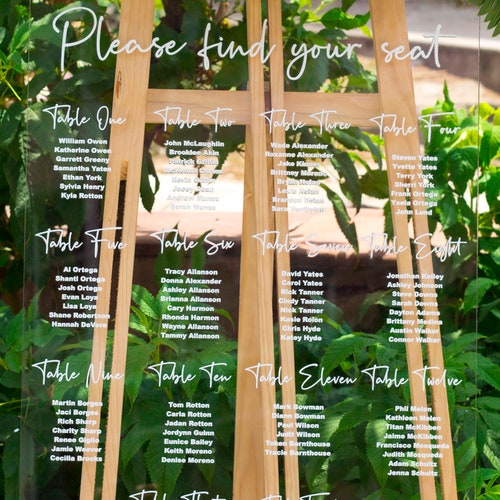 Please find your seat
Table One
William Owen
Katherine Owen
Garrett Greeny
Samantha Yates
Ethan York
Sylvia Henry
Kyla Rotton
Table Two
John McLaughlin
Brooklen Akle
Patrick Griffin
Andrew Munoz
Sarah Munoz
Table Three
Wade Alexander
Roxanne Alexander
Jake
Brittney Moreno
Brian Nolan
Leslie Nolan
Brandon
Table Four
Steven Yates
Yvette Yates
Terry York
Sherri York
Frank Ortega
Yaela Ortega
John Lund
Table Five
Al Ortega
Shanti Ortega
Josh Ortega
Evan Loya
Lisa Loya
Shane Robertson
Hannah DeVore
Table Six
Tracy Allanson
Donna Alexander
Ashley Allanson
Brianna Allanson
Cary Harmon
Rhonda Harmon
Wayne Allanson
Tammy Allanson
Table Seven
David Yates
Carol Yates
Rick Tanner
Cindy Tanner
Nick Tanner
Kasie Rolön
Chris Hyde
Katey Hyde
Table Eight
Jonathan Kelley
Ashley Johnson
Steve Downs
Sarah Downs
Dayton Adams
Brittany Medina
Austin Walker
Connor Walker
Table Nine
Martin Borges
Jaci Borges
Rich Sharp
Charity Sharp
Renee Giglio
Jamie Weaver
Cecilia Brooks
Table Ten
Tom Rotton
Carla Rotton
Jadan Rotton
Jordynn Guinn
Eunice Bailey
Keith Moreno
Denise Moreno
Table Eleven
Mark Bowman
Diann Bowman
Paul Wilson
Judit Wilson
Tokac Barnthouse
Tracie Barnthouse
Table Twelve
Phil Melen
Kathleen Melen
Titan McKibben
Jaime McKibben
Francisco Mosqueda
Judith Mosqueda
Adam Schultz
Jenna Schultz